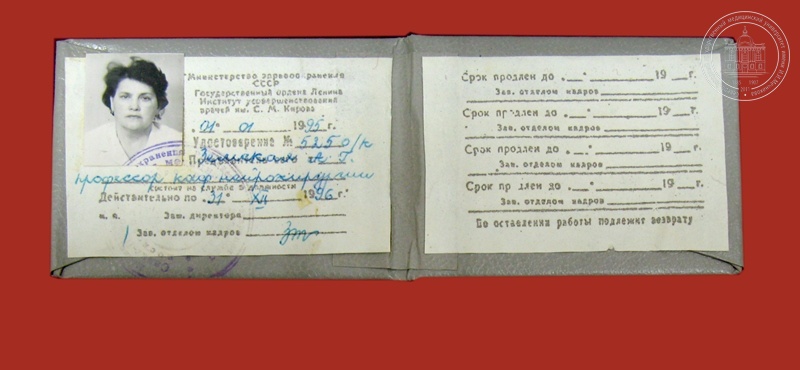 Министерство здравоохранения
СССР
Государственный ордена Ленина
Институт усовершенствования
врачей им. С. М. Кирова
" 01 " 01 1995 г.
Удостоверение № 5250/к
А. Г.
профессор каф нейрохирургии
состоит на службе в должности
Действительно по " 31 " XII 1996 г.
м. п. Зам. директора
Зав. отделом кадров
Срок продлен до " " 19 г.
Зав. отделом кадров
Срок продлен до " " 19 г.
Зав. отделом кадров
Срок продлен до " " 19 г.
Зав. отделом кадров
Срок продлен до " " 19 г.
Зав. отделом кадров
По оставлении работы подлежит возврату